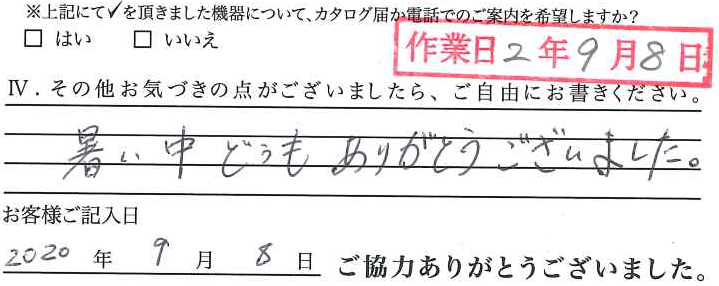 ※上記にて✓を頂きました機器について、カタログ届か電話でのご案内を希望しますか?
□ はい □ いいえ
作業日2年9月8日
Ⅳ.その他お気づきの点がございましたら、ご自由にお書きください。
暑い中どうもありがとうございました。
お客様ご記入日
2020年9月8日 ご協力ありがとうございました。